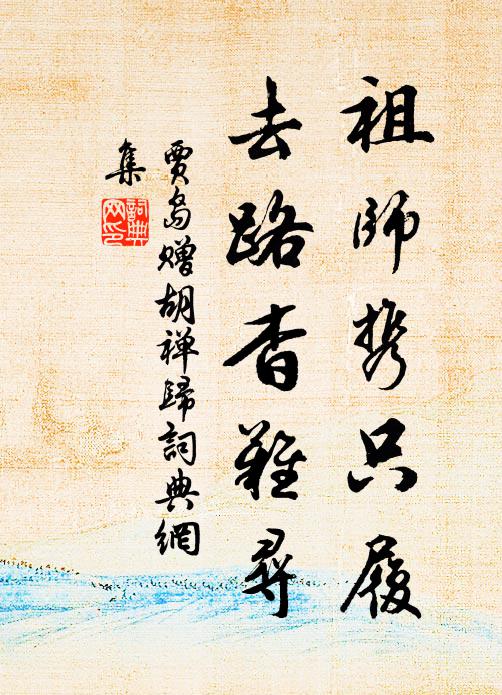 祖師携只履
去路杳難尋
賈島贈胡禅歸詞典網
集
詞典网印